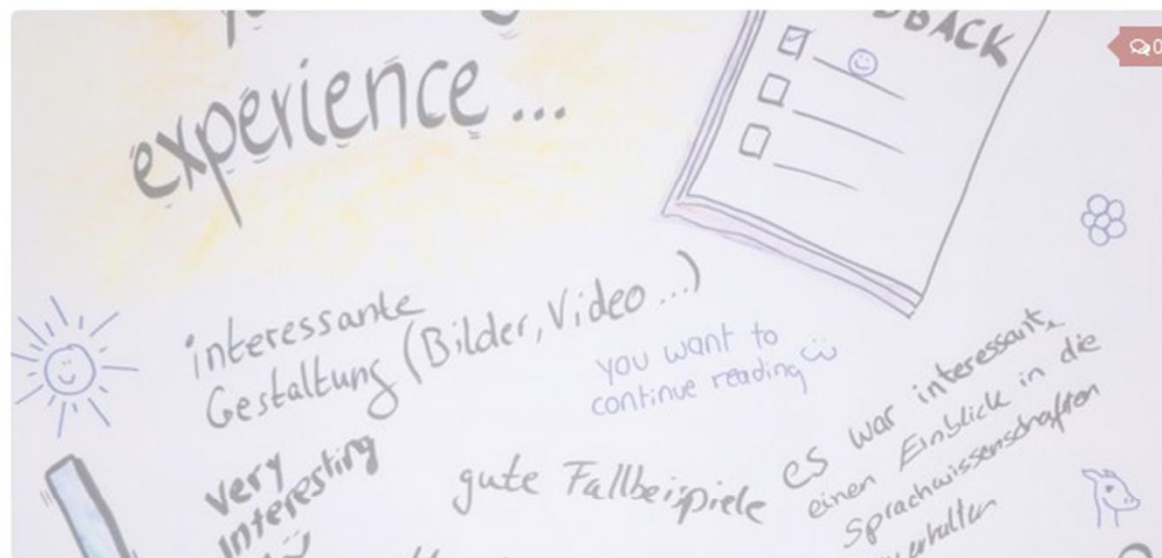 experience...
FEEDBACK
0
interessante
Gestaltung (Bilder, Video...)
you want to
continue reading
very
interesting
gute Fallbeispiele
es war interessant,
einen Einblick in die
Sprachwissenschaften
erhalten